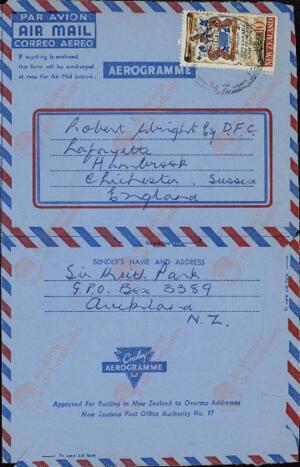 PAR AVION
AIR MAIL
CORREO AEREO
If anything is enclosed,
this form will be surcharged
at rate for Air Mail Letters.
AEROGRAMME
NEW ZEALAND
Robert Wright Esq D.F.C.
Lafayette
Hambrook
Chichester, Sussex
England
SENDER'S NAME AND ADDRESS
Sir Keith Park
G.P.O. Box 3389
Auckland
N.Z.
Croxley
AEROGRAMME
Approved for Posting in New Zealand to Oversea Addresses
New Zealand Post Office Authority No. 17
To open cut here